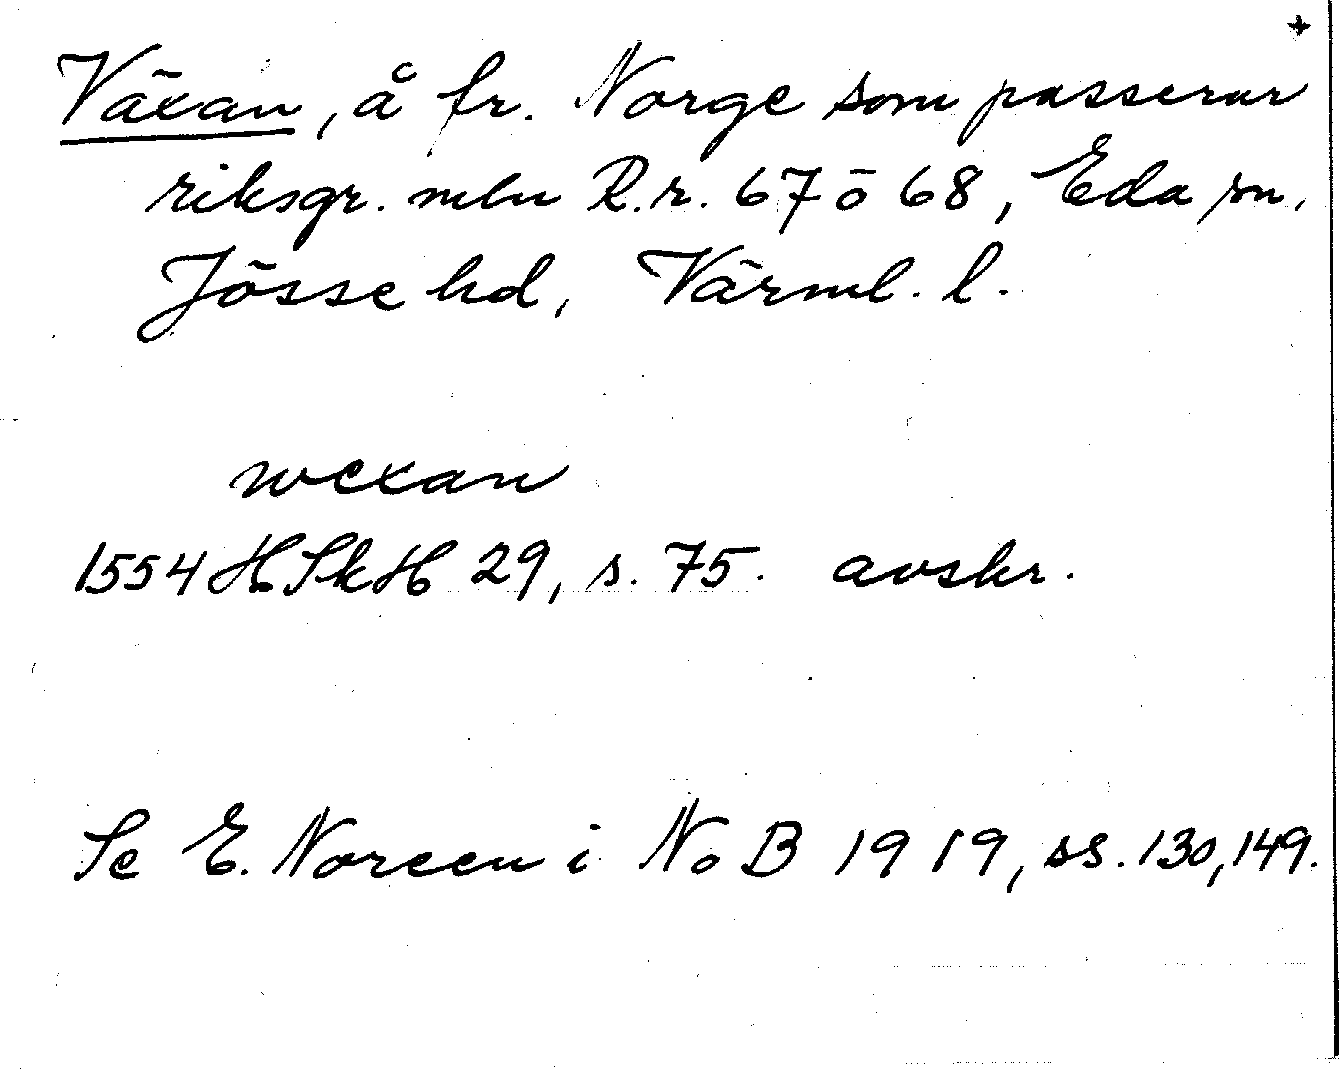 +
Växan, å fr. Norge som passerar
riksgr. mln R.r. 67 ö 68, Eda sn,
Jösse hd, Värml. l.
wexan
1554 HSkH 29, s. 75. avskr.
Se E. Noreen i NoB 1919, ss. 130, 149.